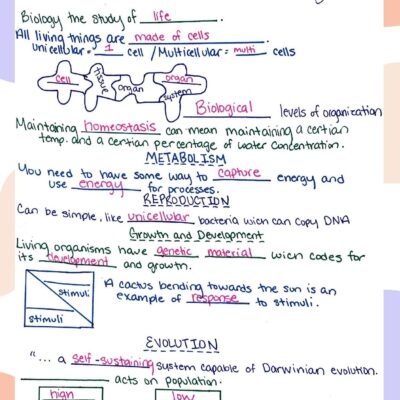 Biology the study of life.
All living things are made of cells
Unicellular = 1 cell / Multicellular = multi cells
cell tissue organ organ system
Biological levels of organization
Maintaining homeostasis can mean maintaining a certian
temp. and a certian percentage of water concentration.
METABOLISM
You need to have some way to capture energy and
use energy for processes.
REPRODUCTION
Can be simple, like unicellular bacteria wich can copy DNA
Growth and Development
Living organisms have genetic material wich codes for
its development and growth.
stimuli
A cactus bending towards the sun is an
example of response to stimuli.
stimuli
EVOLUTION
"... a self-sustaining system capable of Darwinian evolution.
acts on population.
high low